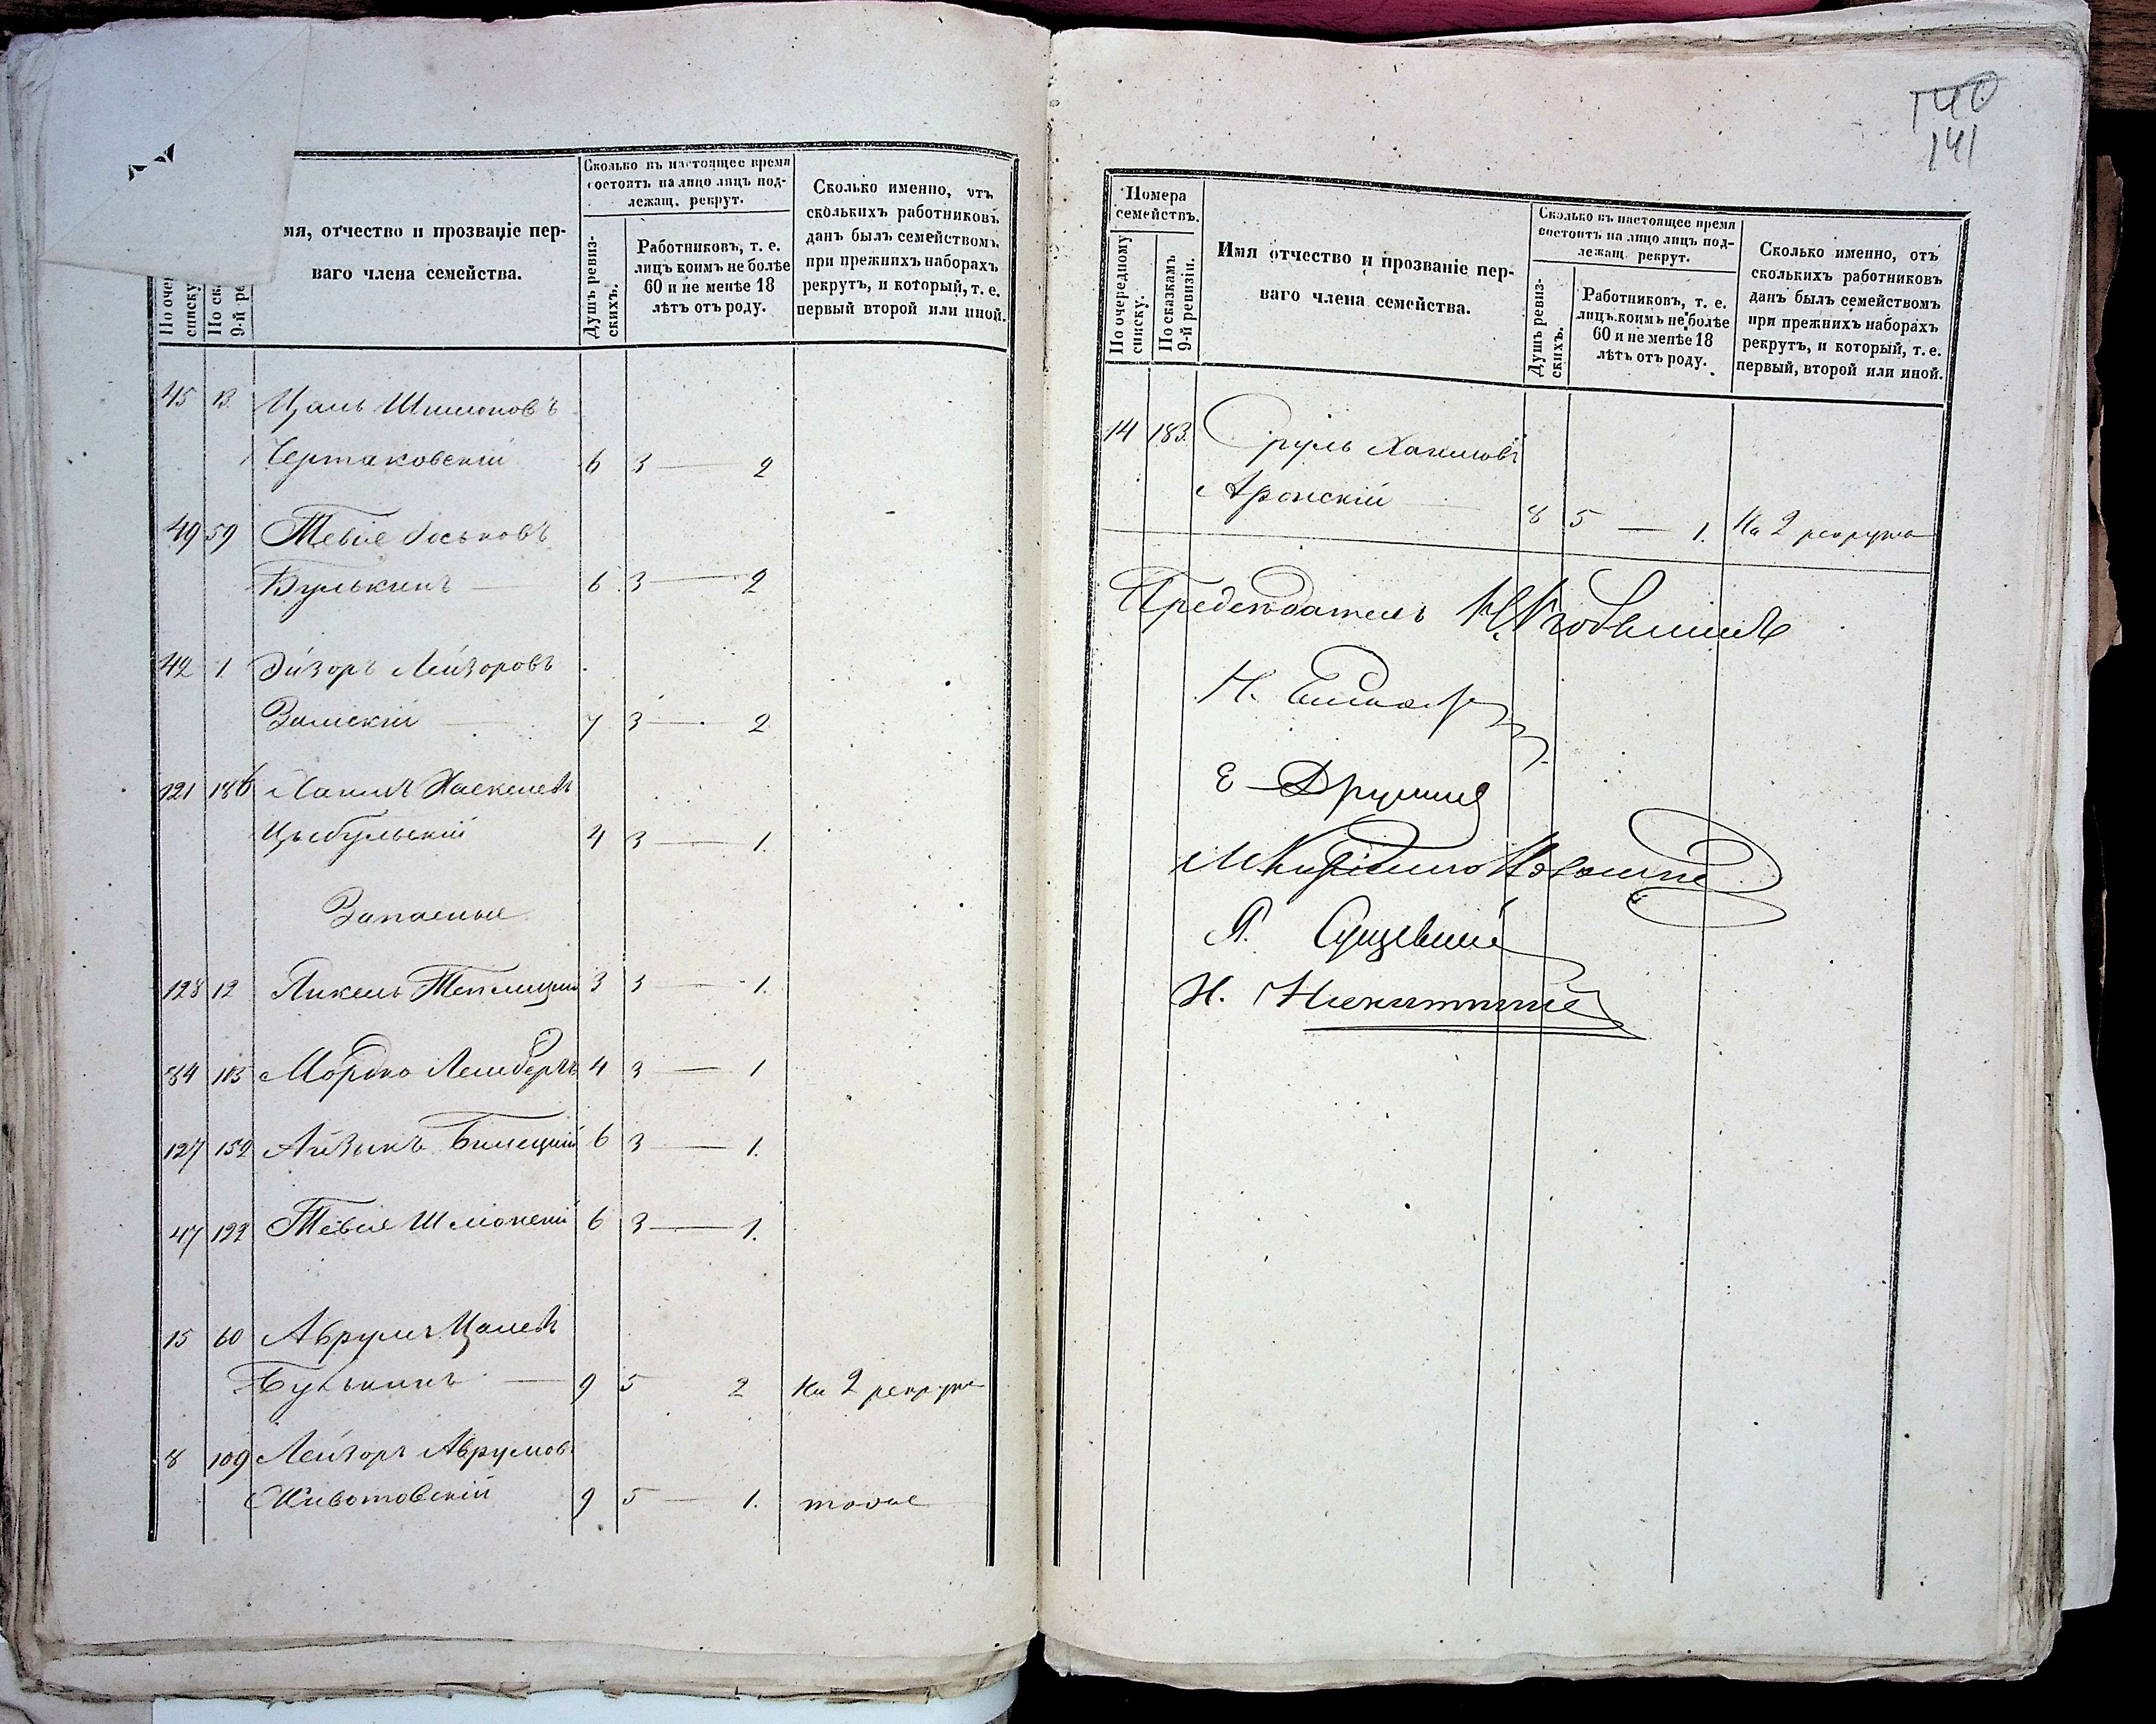 мя, отчество и прозваніе пер-
ваго члена семейства.
Сколько въ настоящее время
состоитъ на лицо лицъ под-
лежащ. рекрут.
Душъ ревиз-
скихъ.
Работниковъ, т. е.
лицъ коимъ не болѣе
60 и не менѣе 18
лѣтъ отъ роду.
Сколько именно, отъ
сколькихъ работниковъ
данъ былъ семействомъ
при прежнихъ наборахъ
рекрутъ, и который, т. е.
первый второй или иной.
По очер
списку
По ска
9-й ре
45 13 Цаль Шимоновъ
Чертаковскій 6 3 — 2
49 59 Тевіе Іоськовъ
Булькинъ — 6 3 — 2
42 1 Эйзоръ Лейзоровъ
Замскій — 7 3 — 2
121 186 Хаимъ Хаскелевъ
Цыбульскій 4 3 — 1.
Запасные
128 12 Янкель Теплицкій 3 3 — 1.
84 113 Мордко Лембергъ 4 3 — 1
127 152 Айзыкъ Билецкій 6 3 — 1.
47 122 Тевіе Шліонскій 6 3 — 1.
15 60 Аврумъ Цалевъ
Булькинъ — 9 5 2 На 2 рекрута
8 109 Лейзоръ Аврумов
Животовскій 9 5 — 1. тоже
140
141
Номера
семействъ.
По очередному
списку.
По сказкамъ
9-й ревизіи.
Имя отчество и прозваніе пер-
ваго члена семейства.
Сколько въ настоящее время
состоитъ на лицо лицъ под-
лежащ. рекрут.
Душъ ревиз-
скихъ.
Работниковъ, т. е.
лицъ коимъ не болѣе
60 и не менѣе 18
лѣтъ отъ роду.
Сколько именно, отъ
сколькихъ работниковъ
данъ былъ семействомъ
при прежнихъ наборахъ
рекрутъ, и который, т. е.
первый, второй или иной.
14 183 Сруль Хаимовъ
Аронскій — 8 5 — 1. На 2 рекрута
Предсѣдатель
Н.
Е
Я. Сущевскій
Н. Никитинъ